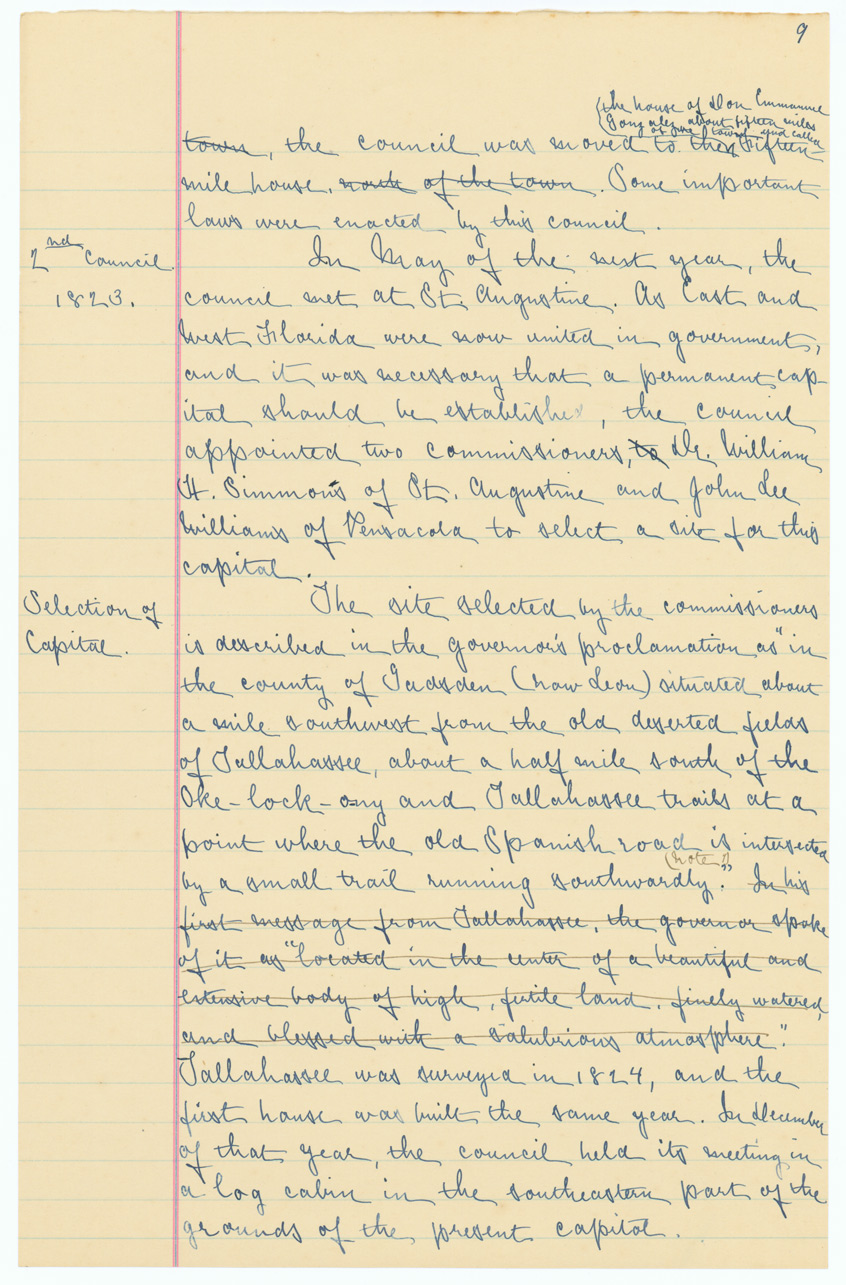 9
(the house of Don Emmanuel
Gonzales about fifteen miles
out of town and called
town, the council was moved to the Fifteen-
mile house, north of the town. Some important
laws were enacted by this council.
2nd Council
1823.
In May of the next year, the
council met at St. Augustine. As East and
West Florida were now united in government,
and it was necessary that a permanent cap-
ital should be established, the council
appointed two commissioners, to Dr. William
H. Simmons of St. Augustine and John Lee
Williams of Pensacola to select a site for this
capital.
Selection of
Capital.
The site selected by the commissioners
is described in the governor's proclamation as "in
the county of Gadsden (now Leon) situated about
a mile southwest from the old deserted fields
of Tallahassee, about a half mile south of the
Oke-lock-o-ny and Tallahassee trails at a
point where the old Spanish road is intersected
(note)
by a small trail running southwardly." In his
first message from Tallahassee, the governor spoke
of it as "located in the center of a beautiful and
extensive body of high, futile land, finely watered,
and blessed with a salubrious atmosphere."
Tallahassee was surveyed in 1824, and the
first house was built the same year. In December
of that year, the council held its meeting in
a log cabin in the southeastern part of the
grounds of the present capitol.